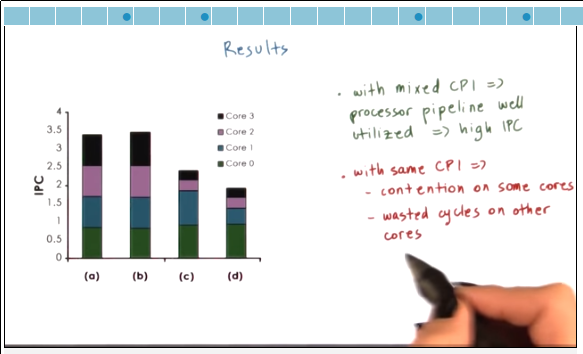 Results
4
3.5
3
2.5
2
1.5
1
0.5
0
IPC
Core 3
Core 2
Core 1
Core 0
(a) (b) (c) (d)
. with mixed CPI =>
processor pipeline well
utilized => high IPC
. with same CPI =>
- contention on some cores
- wasted cycles on other
cores